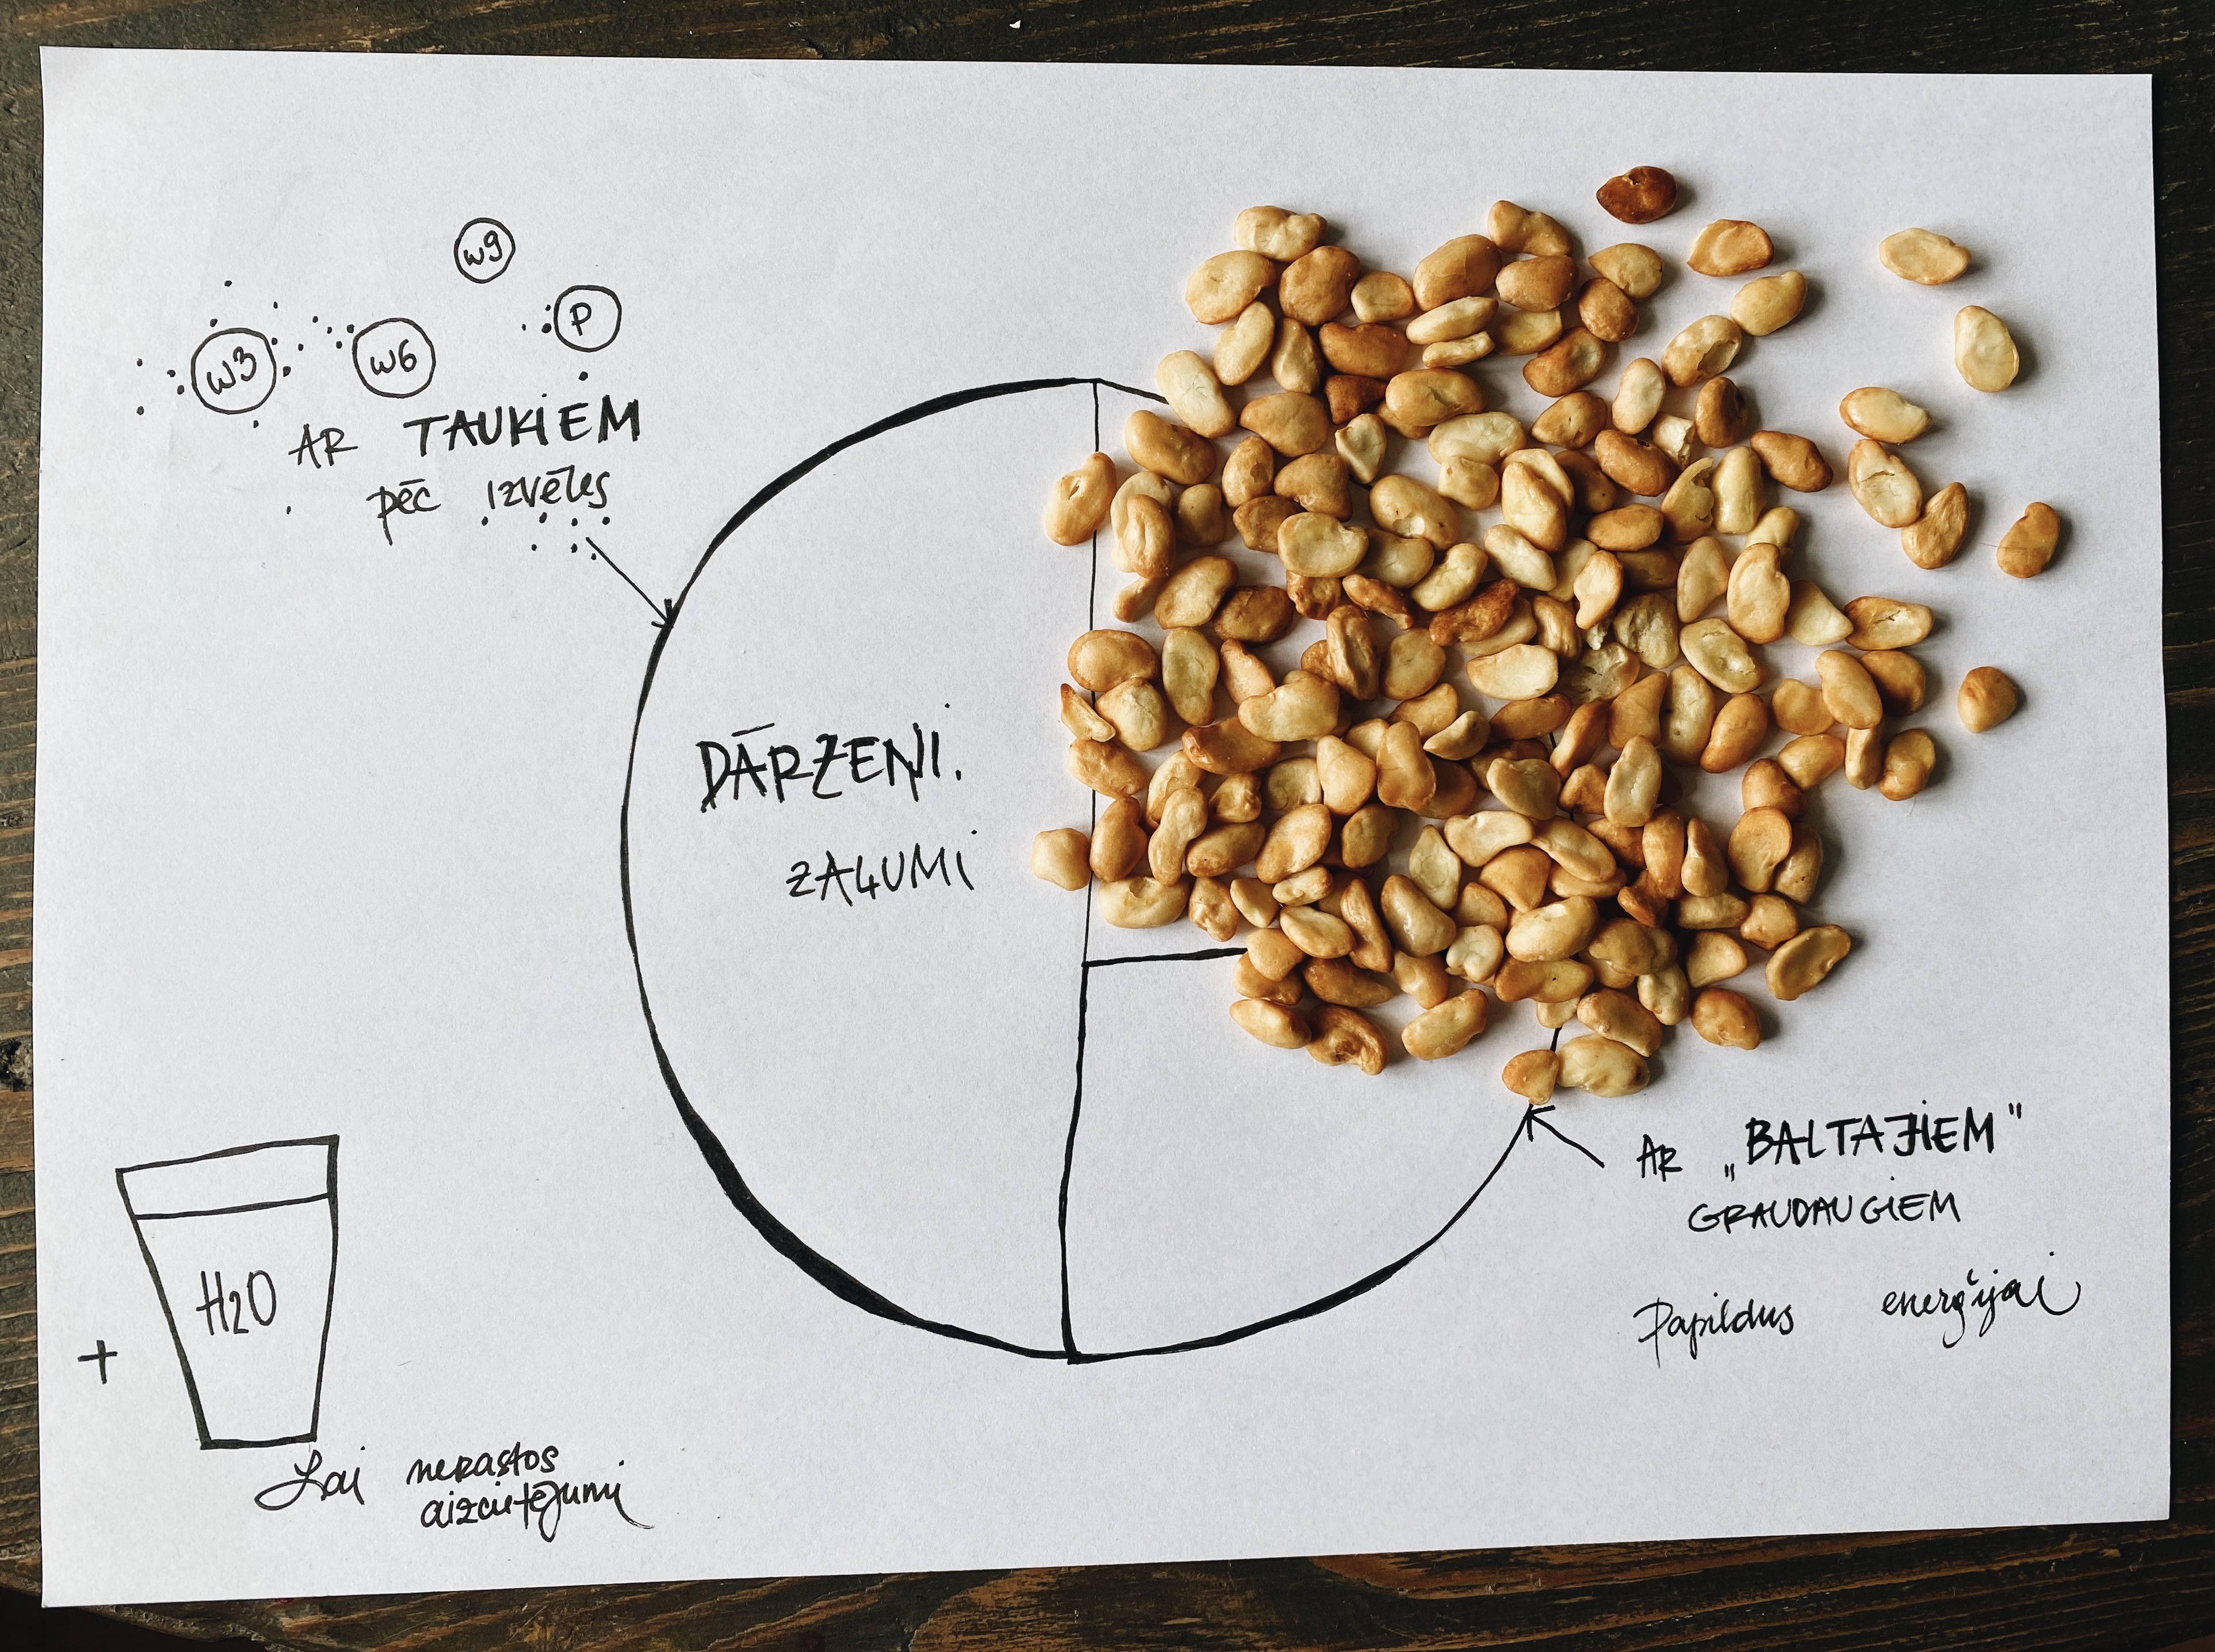 w9
P
w3
w6
AR TAUKIEM
pēc izvēles
DĀRZEŅI.
ZAĻUMI
AR „BALTAJIEM"
GRAUDAUGIEM
Papildus enerģijai
H2O
+
Lai nerastos
aizcietējumi